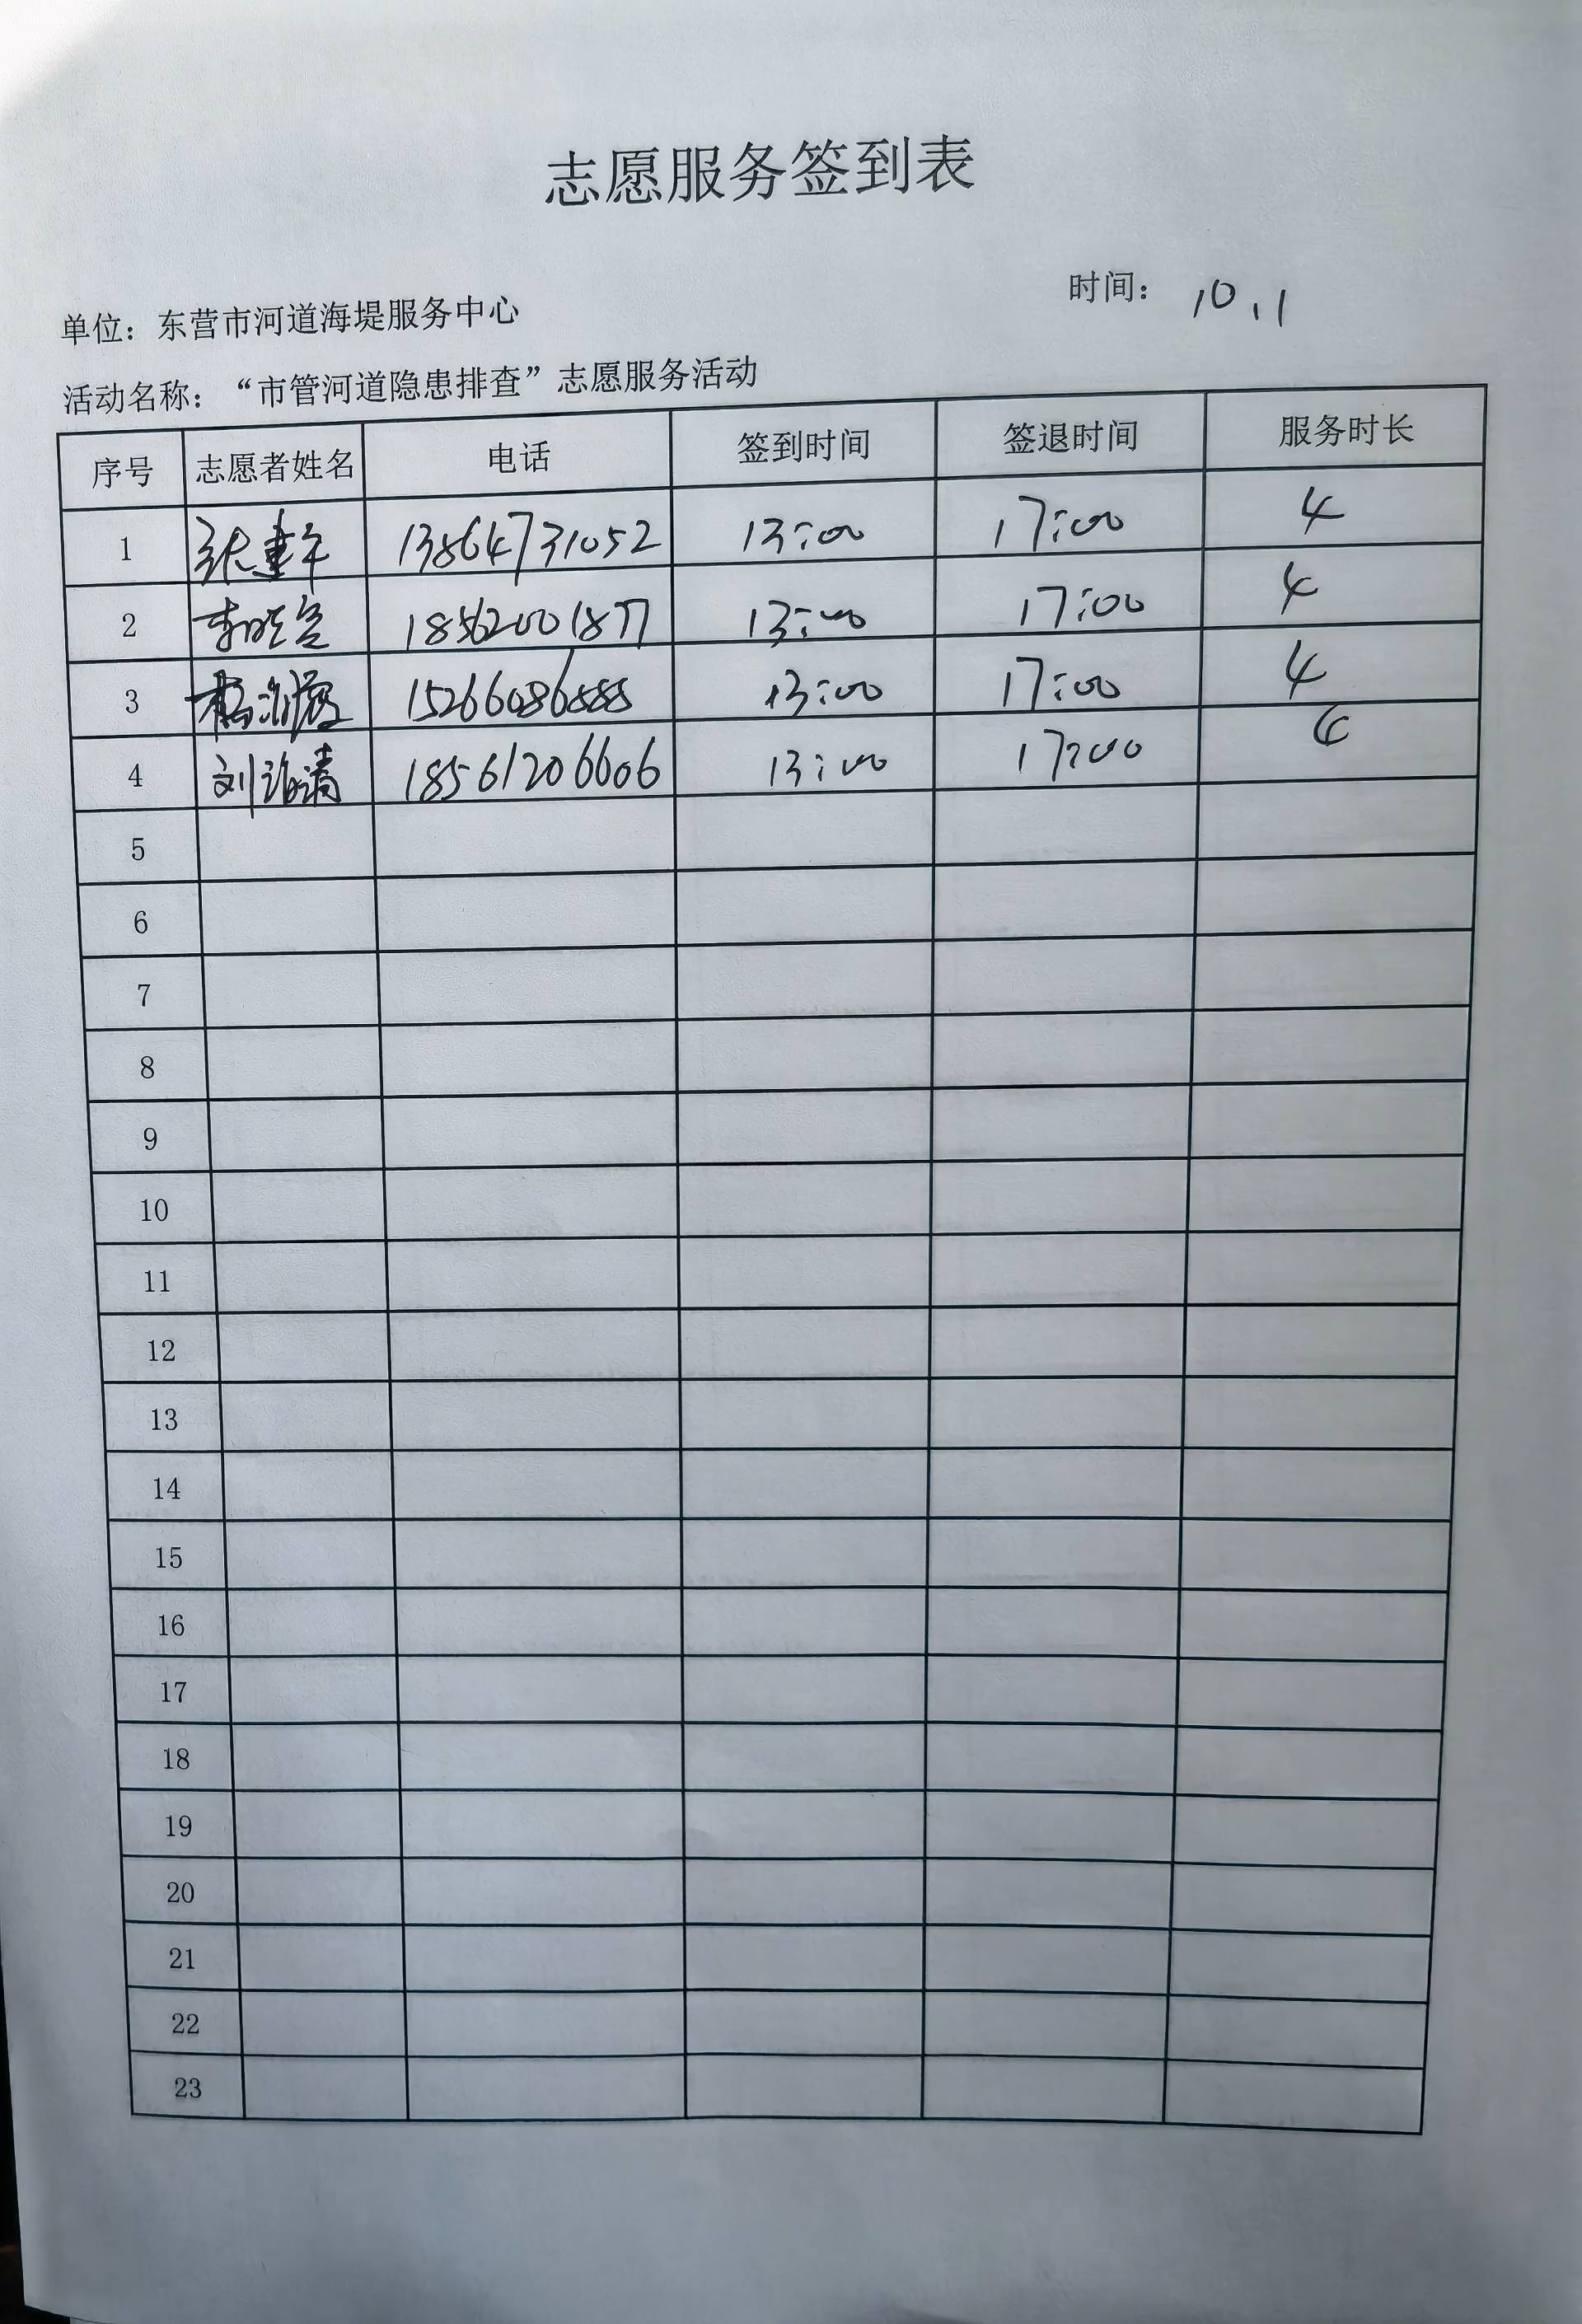 志愿服务签到表
时间： 10.1
单位：东营市河道海堤服务中心
活动名称：“市管河道隐患排查”志愿服务活动
序号 志愿者姓名 电话 签到时间 签退时间 服务时长
1 13864731052 13:00 17:00 4
2 18562001877 13:00 17:00 4
3 13:00 17:00 4
4 刘 18561206606 13:00 17:00
5
6
7
8
9
10
11
12
13
14
15
16
17
18
19
20
21
22
23